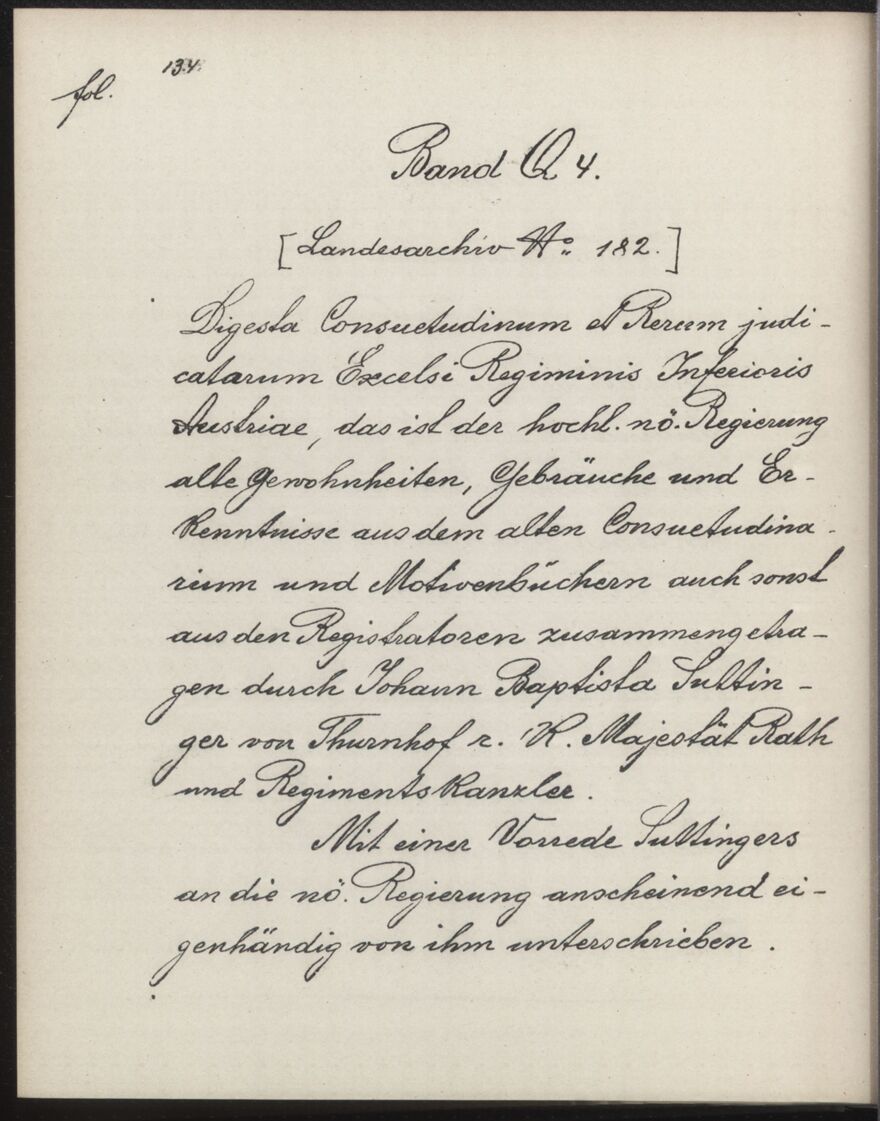 134.
fol.
Band Q 4.
[Landesarchiv No: 182.]
Digesta Consuetudinum et Rerum judi-
catarum Excelsi Regiminis Inferioris
Austriae, das ist der hochl. nö. Regierung
alte Gewohnheiten, Gebräuche und Er-
kenntnisse aus dem alten Consuetudina-
rium und Motivenbüchern auch sonst
aus den Registratoren zusammengetra-
gen durch Johann Baptista Suttin-
ger von Thurnhof r. K. Majestät Rath
und Regimentskanzler.
Mit einer Vorrede Suttingers
an die nö. Regierung anscheinend ei-
genhändig von ihm unterschrieben.